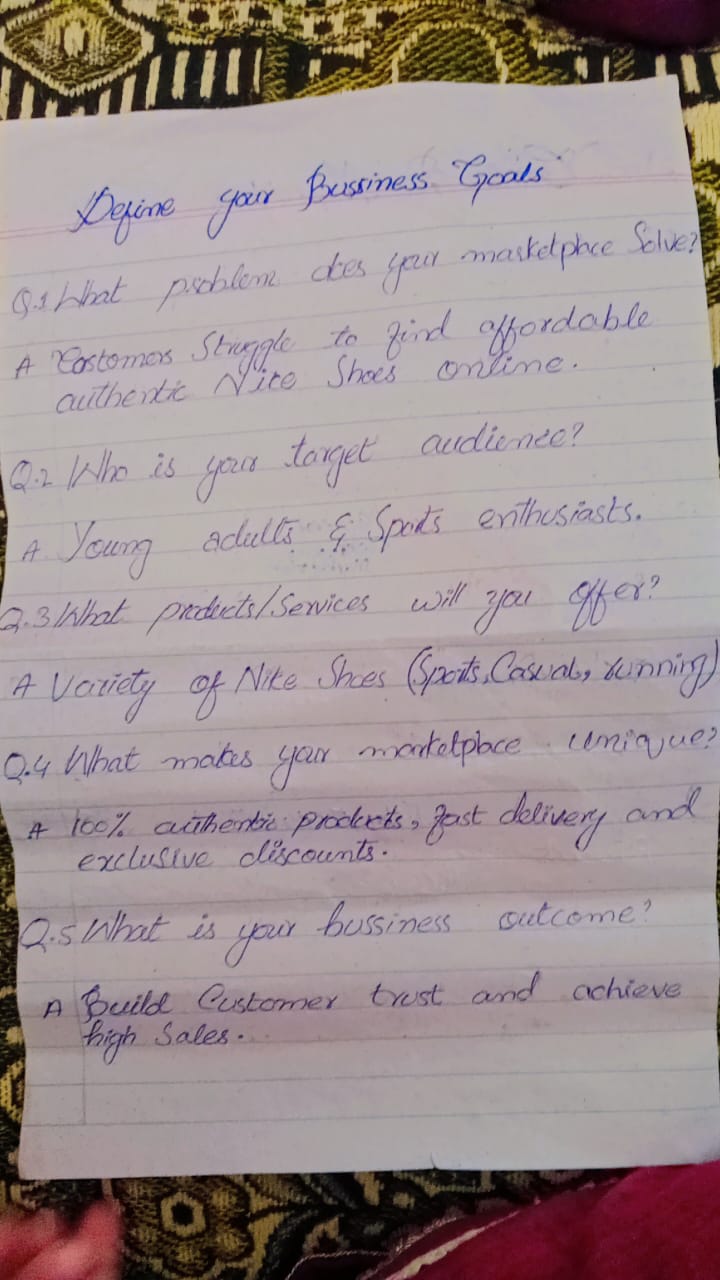 Define your Bussiness Goals
Q.1 What problem does your marketplace Solve?
A Costomers Struggle to find affordable
authentic Nike Shoes online.
Q.2 Who is your target audience?
A Young adults & Sports enthusiasts.
Q.3 What products/Services will you offer?
A Variety of Nike Shoes (Sports, Casual, running)
Q.4 What makes your marketplace unique?
A 100% authentic products, fast delivery and
exclusive discounts.
Q.5 What is your bussiness outcome?
A Build Customer trust and achieve
high Sales.